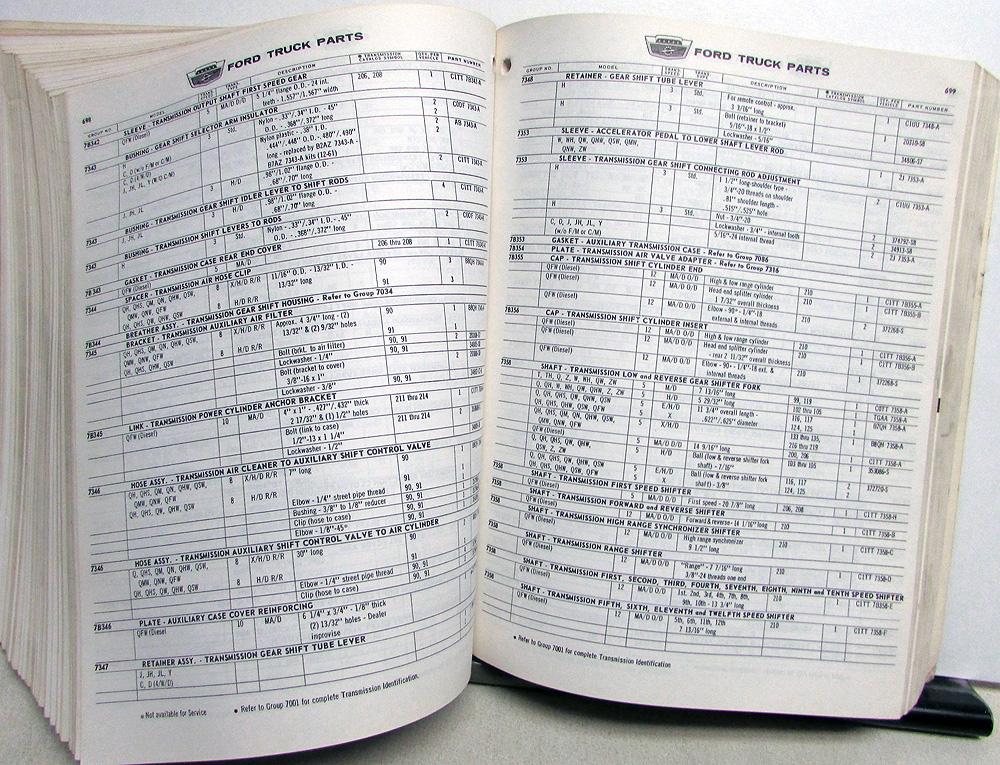 FORD TRUCK PARTS
698
GROUP NO. MODEL DESCRIPTION TRANSMISSION CATALOG SYMBOL QTY. PER VEHICLE PART NUMBER
7B342 SLEEVE - TRANSMISSION OUTPUT SHAFT FIRST SPEED GEAR
QFW (Diesel) 5 MA/D O/D 5 1/4" flange O.D. - 24 int. 206, 208 1
teeth - 1.557"/1.567" width
7343 BUSHING - GEAR SHIFT SELECTOR ARM INSULATOR
H Std. Nylon - .33"/.34" I.D. - .45" 2
O.D. - .368"/.372" long 2
Nylon plastic - .38" I.D. 2
.444"/.448" O.D. - .480"/.490"
long - replaced by B2AZ 7343-A
B7AZ 7343-A kits (12-61)
J, JH, JL 3 H/D .98"/1.02" flange O.D. - 2
.68"/.70" long
7343 BUSHING - TRANSMISSION GEAR SHIFT IDLER LEVER TO SHIFT RODS
J, JH, JL 3 H/D .98"/1.02" flange O.D. - 4
.68"/.70" long
7343 BUSHING - TRANSMISSION SHIFT LEVERS TO RODS
H 3 Std. Nylon - .33"/.34" I.D. - .45" 2
O.D. - .368"/.372" long
7B343 GASKET - TRANSMISSION CASE REAR END COVER
QFW (Diesel) 5 MA/D 206 thru 208 1
7344 SPACER - TRANSMISSION AIR HOSE CLIP
QH, QHS, QM, QN, QHW, QSW, 8 X/H/D R/R 11/16" O.D. - 13/32" I.D. - 90 3
QMW, QNW, QFW 13/32" long
QH, QHS, QM, QHW, QSW 8 H/D R/R 91 3
7B344 BREATHER ASSY. - TRANSMISSION GEAR SHIFT HOUSING - Refer to Group 7034
7345 BRACKET - TRANSMISSION AUXILIARY AIR FILTER
QH, QHS, QM, QN, QHW, QSW, 8 X/H/D R/R Approx. 4 3/4" long - (2) 90 1
QMW, QNW, QFW 13/32 & (2) 9/32" holes
QH, QHS, QM, QHW, QSW 8 H/D R/R 91 1
Bolt (brkt. to air filter) 90, 91 2
Lockwasher - 1/4" 90, 91
Bolt (bracket to case) 2
3/8"-16 x 1"
Lockwasher - 3/8" 90, 91
7B345 LINK - TRANSMISSION POWER CYLINDER ANCHOR BRACKET
QFW (Diesel) 10 MA/D 4" x 1" - .427"/.432" thick 211 thru 214 1
2 17/32" & (1) 1/2" holes
Bolt (link to case) 211 thru 214
1/2"-13 x 1 1/4"
Lockwasher - 1/2"
7346 HOSE ASSY. - TRANSMISSION AIR CLEANER TO AUXILIARY SHIFT CONTROL VALVE
QH, QHS, QM, QN, QHW, QSW, 8 X/H/D R/R 7" long 90
QMW, QNW, QFW
QH, QHS, QM, QHW, QSW 8 H/D R/R 91
Elbow - 1/4" street pipe thread 90, 91
Bushing - 3/8" to 1/8" reducer 90, 91
Clip (hose to case) 90, 91
Elbow - 1/8"-45° 90, 91
7346 HOSE ASSY. - TRANSMISSION AUXILIARY SHIFT CONTROL VALVE TO AIR CYLINDER
Q, QHS, QM, QN, QHW, QSW, 8 X/H/D R/R 30" long 90
QMW, QNW, QFW
QH, QHS, QM, QHW, QSW 8 H/D R/R 91
Elbow - 1/4" street pipe thread 90, 91
Clip (hose to case) 90, 91
7B346 PLATE - AUXILIARY CASE COVER REINFORCING
QFW (Diesel) 10 MA/D 6 1/4" x 3/4" - 1/8" thick
(2) 13/32" holes - Dealer
improvise
7347 RETAINER ASSY. - TRANSMISSION GEAR SHIFT TUBE LEVER
J, JH, JL, Y
C, D (4/W/D)
* Not available for Service
• Refer to Group 7001 for complete Transmission Identification.
FORD TRUCK PARTS
699
GROUP NO. MODEL DESCRIPTION TRANSMISSION CATALOG SYMBOL QTY. PER VEHICLE PART NUMBER
7348 RETAINER - GEAR SHIFT TUBE LEVER
H 3 Std. For remote control - approx. 1 C1UU 7348-A
3 7/16" long
H Bolt (retainer to bracket) 20310-S8
5/16"-18 x 1/2"
Lockwasher - 5/16" 34806-S7
7353 SLEEVE - ACCELERATOR PEDAL TO LOWER SHAFT LEVER ROD
W, WH, QW, QMW, QSW, QMW,
QNW, ZW 1 21 7353-A
7353 SLEEVE - TRANSMISSION GEAR SHIFT CONNECTING ROD ADJUSTMENT
H 3 Std. 1 1/2" long-shoulder type - 2 C1UU 7353-A
3/4"-20 threads on shoulder
.81" shoulder length -
.515"/.525" hole
Nut - 3/4"-20 374792-S8
H 3 Std. Lockwasher - 3/4" - internal tooth 34913-S8
C, D, J, JH, JL, Y 5/16"-24 internal thread 2 21 7353-A
(w/o F/M or C/M)
7B353 GASKET - AUXILIARY TRANSMISSION CASE - Refer to Group 7086
7B354 PLATE - TRANSMISSION AIR VALVE ADAPTER - Refer to Group 7316
7B355 CAP - TRANSMISSION SHIFT CYLINDER END
QFW (Diesel) 12 MA/D O/D High & low range cylinder 210 1 C1TT 7B355-A
QFW (Diesel) 12 MA/D O/D Head end splitter cylinder 1 C1TT 7B355-B
1 7/32" overall thickness
QFW (Diesel) 12 MA/D O/D Elbow - 90° - 1/4"-18 210 372268-S
external & internal threads
7B356 CAP - TRANSMISSION SHIFT CYLINDER INSERT
QFW (Diesel) 12 MA/D O/D High & low range cylinder 210 1 C1TT 7B356-A
QFW (Diesel) 12 MA/D O/D Head end splitter cylinder 1 C1TT 7B356-B
- rear 2 11/32" overall thickness
QFW (Diesel) 12 MA/D O/D Elbow - 90 - - 1/4"-18 ext. & 210 372268-S
internal threads
7358 SHAFT - TRANSMISSION LOW and REVERSE GEAR SHIFTER FORK
T, TH, Q, Z, W, WH, QW, ZW 5 M/D 7 13/16" long 99, 119 1 C0TT 7358-A
Q, QH, W, WH, QW, QHW, Z, ZW 5 H/D 5 29/32" long 102 thru 105 1 TGAA 7358-A
5 E/H/D 11 3/4" overall length - 116, 117 1 B7QH 7358-A
QH, QHS, QM, QN, QHW, QSW, 5 X/H/D .622"/.625" diameter 124, 125
QMW, QNW, QFW 133 thru 135, 1 B8QH 7358-A
216 thru 219
QFW (Diesel) 5 MA/D O/D 14 9/16" long 200, 206 1 C1TT 7358-A
Q, QH, QHS, QW, QHW, 5 H/D Ball (low & reverse shifter fork 103 thru 105 353086-S
QSW, Z, ZW shaft) - 7/16"
Q, QH, QHS, QW, QHW, QSW 5 E/H/D Ball (low & reverse shifter fork 116, 117 372720-S
QH, QHS, QW, QHW, QSW, QFW 5 X shaft) - 3/8" 124, 125
7358 SHAFT - TRANSMISSION FIRST SPEED SHIFTER
QFW (Diesel) 5 MA/D O/D First speed - 20 7/8" long 206, 208 1 C1TT 7358-H
7358 SHAFT - TRANSMISSION FORWARD and REVERSE SHIFTER
QFW (Diesel) 12 MA/D O/D Forward & reverse - 14 1/16" long 210 1 C1TT 7358-B
7358 SHAFT - TRANSMISSION HIGH RANGE SYNCHRONIZER SHIFTER
QFW (Diesel) 12 MA/D O/D High range synchronizer 210 1 C1TT 7358-C
9 1/2" long
7358 SHAFT - TRANSMISSION RANGE SHIFTER
QFW (Diesel) 12 MA/D O/D "Range" - 7 7/16" long 210 1 C1TT 7358-D
3/8"-24 threads one end
7358 SHAFT - TRANSMISSION FIRST, SECOND, THIRD, FOURTH, SEVENTH, EIGHTH, NINTH and TENTH SPEED SHIFTER
QFW (Diesel) 12 MA/D O/D 1st, 2nd, 3rd, 4th, 7th, 8th, 210 1 C1TT 7358-E
9th, 10th - 13 3/4" long
7358 SHAFT - TRANSMISSION FIFTH, SIXTH, ELEVENTH and TWELFTH SPEED SHIFTER
QFW (Diesel) 12 MA/D O/D 5th, 6th, 11th, 12th 210 1 C1TT 7358-F
7 13/16" long
• Refer to Group 7001 for complete Transmission Identification